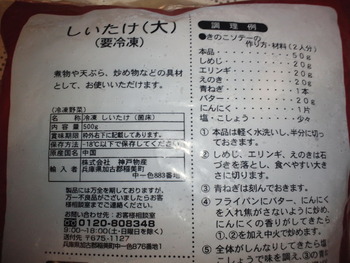 しいたけ(大)
(要冷凍)
煮物や天ぷら、炒め物などの具材
として、お使いいただけます。
(冷凍野菜)
名称 冷凍 しいたけ(菌床)
内容量 500g
賞味期限 枠外右下に記載してあります。
保存方法 -18℃以下で保存してください。
原産国名 中国
輸入者 株式会社 神戸物産
兵庫県加古郡稲美町
中一色883番地
製品には万全を期しておりますが、
万一不良品がございましたらお客
様相談室までご連絡ください。
お問い合わせ先:お客様相談室
0120-808348
9:00~18:00(土・日曜日を除く)
送付先 〒675-1127
兵庫県加古郡稲美町中一色876番地1
調理例
●きのこソテーの
作り方・材料(2人分)
本品 50g
しめじ 20g
エリンギ 20g
えのき 20g
青ねぎ 1本
バター 20g
にんにく 1片
塩・こしょう 少々
① 本品は軽く水洗いし、半分に切っ
ておきます。
② しめじ、エリンギ、えのきは石
づきを落とし、食べやすい大き
さに切ります。
③ 青ねぎは刻んでおきます。
④ フライパンにバター、にんにく
を入れ焦がさないように炒め、
にんにくの香りがしてきたら
①、②を加え中火で炒めます。
⑤ 全体がしんなりしてきたら塩
こしょうで味を調え、③の青